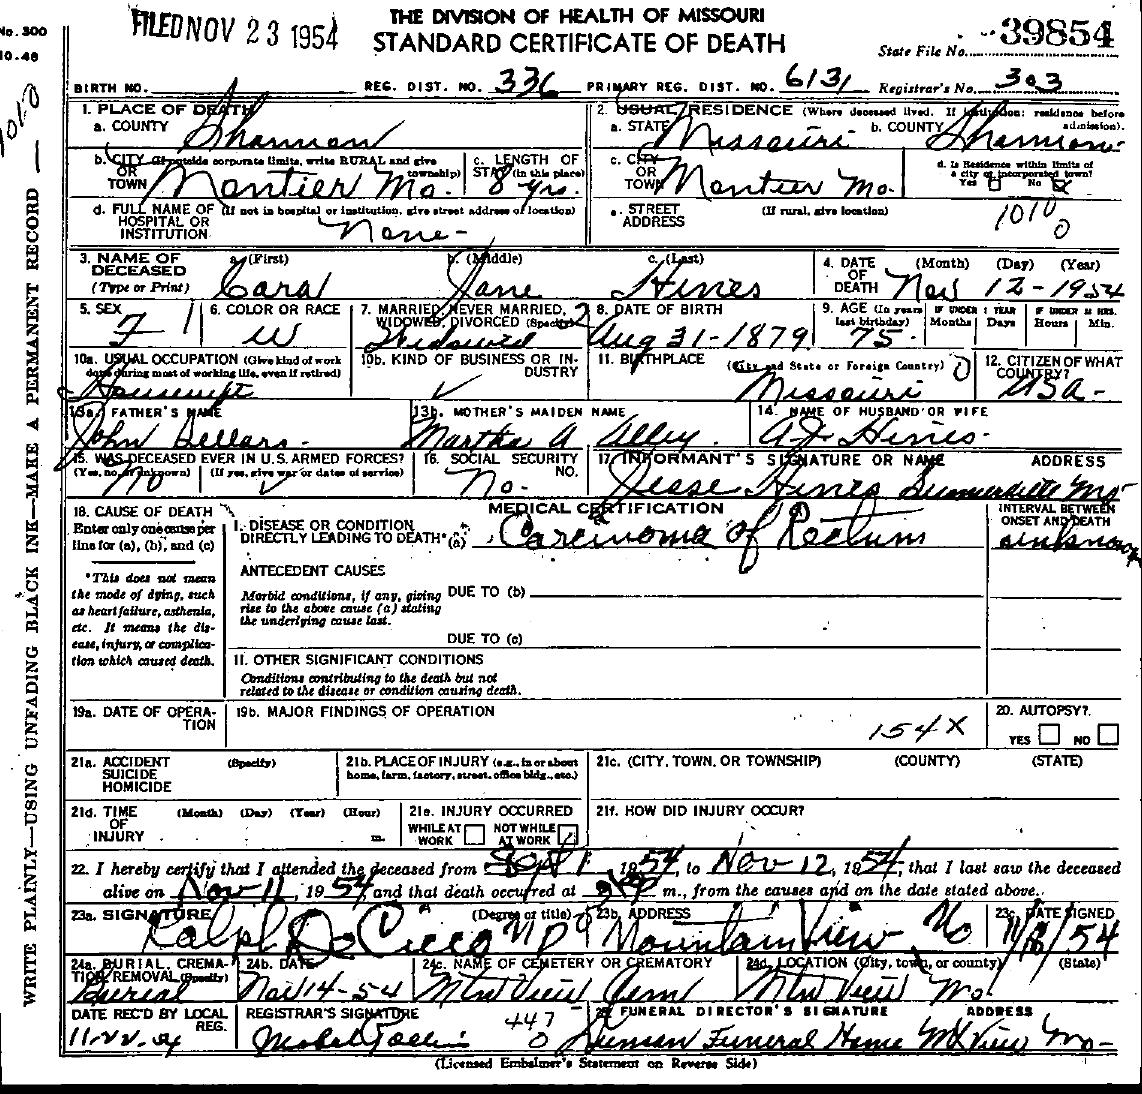 THE DIVISION OF HEALTH OF MISSOURI
FILED NOV 23 1954
STANDARD CERTIFICATE OF DEATH
State File No. 39854
No. 300
10-48
BIRTH NO. REG. DIST. NO. 336 PRIMARY REG. DIST. NO. 6131 Registrar's No. 303
1. PLACE OF DEATH
a. COUNTY Shannon
2. USUAL RESIDENCE (Where deceased lived. If institution: residence before admission).
a. STATE Missouri b. COUNTY Shannon
b. CITY (If outside corporate limits, write RURAL and give township)
OR
TOWN Montier Mo.
c. LENGTH OF
STAY (in this place)
8 yrs.
c. CITY
OR
TOWN Montier Mo.
d. Is Residence within limits of
a city or incorporated town?
Yes No
d. FULL NAME OF (If not in hospital or institution, give street address or location)
HOSPITAL OR
INSTITUTION None-
e. STREET (If rural, give location)
ADDRESS
1010
0
3. NAME OF DECEASED
(Type or Print)
a. (First) b. (Middle) c. (Last)
Cora Jane Hines
4. DATE OF DEATH (Month) (Day) (Year)
Nov 12-1954
5. SEX
F 1
6. COLOR OR RACE
W
7. MARRIED, NEVER MARRIED,
WIDOWED, DIVORCED (Specify) 2
Widowed
8. DATE OF BIRTH
Aug 31-1879
9. AGE (In years last birthday)
75-
IF UNDER 1 YEAR
Months Days
IF UNDER 24 HRS.
Hours Min.
10a. USUAL OCCUPATION (Give kind of work
done during most of working life, even if retired)
Housewife
10b. KIND OF BUSINESS OR INDUSTRY
11. BIRTHPLACE (City and State or Foreign Country) 0
Missouri
12. CITIZEN OF WHAT
COUNTRY?
USA-
13a. FATHER'S NAME
John Sellars-
13b. MOTHER'S MAIDEN NAME
Martha A Alley
14. NAME OF HUSBAND OR WIFE
AJ Hines-
15. WAS DECEASED EVER IN U.S. ARMED FORCES?
(Yes, no, or unknown) (If yes, give war or dates of service)
No
16. SOCIAL SECURITY
NO.
No.
17. INFORMANT'S SIGNATURE OR NAME ADDRESS
Jesse Hines Summersville Mo
18. CAUSE OF DEATH
Enter only one cause per
line for (a), (b), and (c)
*This does not mean
the mode of dying, such
as heart failure, asthenia,
etc. It means the dis-
ease, injury, or complica-
tion which caused death.
MEDICAL CERTIFICATION
INTERVAL BETWEEN
ONSET AND DEATH
I. DISEASE OR CONDITION
DIRECTLY LEADING TO DEATH* (a) Carcinoma of Rectum unknown
ANTECEDENT CAUSES
Morbid conditions, if any, giving
rise to the above cause (a) stating
the underlying cause last.
DUE TO (b)
DUE TO (c)
II. OTHER SIGNIFICANT CONDITIONS
Conditions contributing to the death but not
related to the disease or condition causing death.
19a. DATE OF OPERA-
TION
19b. MAJOR FINDINGS OF OPERATION
154X
20. AUTOPSY?
YES NO
21a. ACCIDENT (Specify)
SUICIDE
HOMICIDE
21b. PLACE OF INJURY (e.g., in or about
home, farm, factory, street, office bldg., etc.)
21c. (CITY, TOWN, OR TOWNSHIP) (COUNTY) (STATE)
21d. TIME (Month) (Day) (Year) (Hour)
OF
INJURY m.
21e. INJURY OCCURRED
WHILE AT WORK NOT WHILE AT WORK
21f. HOW DID INJURY OCCUR?
22. I hereby certify that I attended the deceased from Sept 1, 1954, to Nov 12, 1954, that I last saw the deceased
alive on Nov 11, 1954, and that death occurred at m., from the causes and on the date stated above.
23a. SIGNATURE (Degree or title)
Ralph DeCicco MD
23b. ADDRESS
Mountain View Mo
23c. DATE SIGNED
54
24a. BURIAL, CREMA-
TION, REMOVAL (Specify)
Burial
24b. DATE
Nov 14-54
24c. NAME OF CEMETERY OR CREMATORY
Mtn View Cem
24d. LOCATION (City, town, or county) (State)
Mtn View Mo.
DATE REC'D BY LOCAL
REG.
11-22-54
REGISTRAR'S SIGNATURE
Mabel
447
0
25. FUNERAL DIRECTOR'S SIGNATURE ADDRESS
Duncan Funeral Home Mt View Mo-
(Licensed Embalmer's Statement on Reverse Side)
WRITE PLAINLY—USING UNFADING BLACK INK—MAKE A PERMANENT RECORD